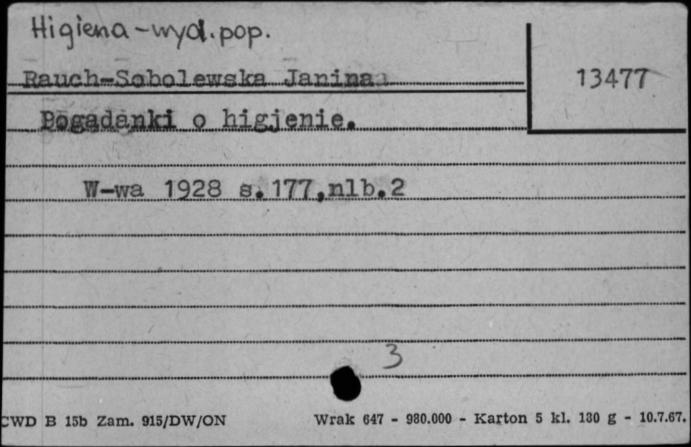 Higiena - wyd. pop.
Rauch-Sobolewska Janina
13477
Pogadanki o higjenie.
W-wa 1928 s.177,nlb.2
3
CWD B 15b Zam. 915/DW/ON
Wrak 647 - 980.000 - Karton 5 kl. 180 g - 10.7.67.